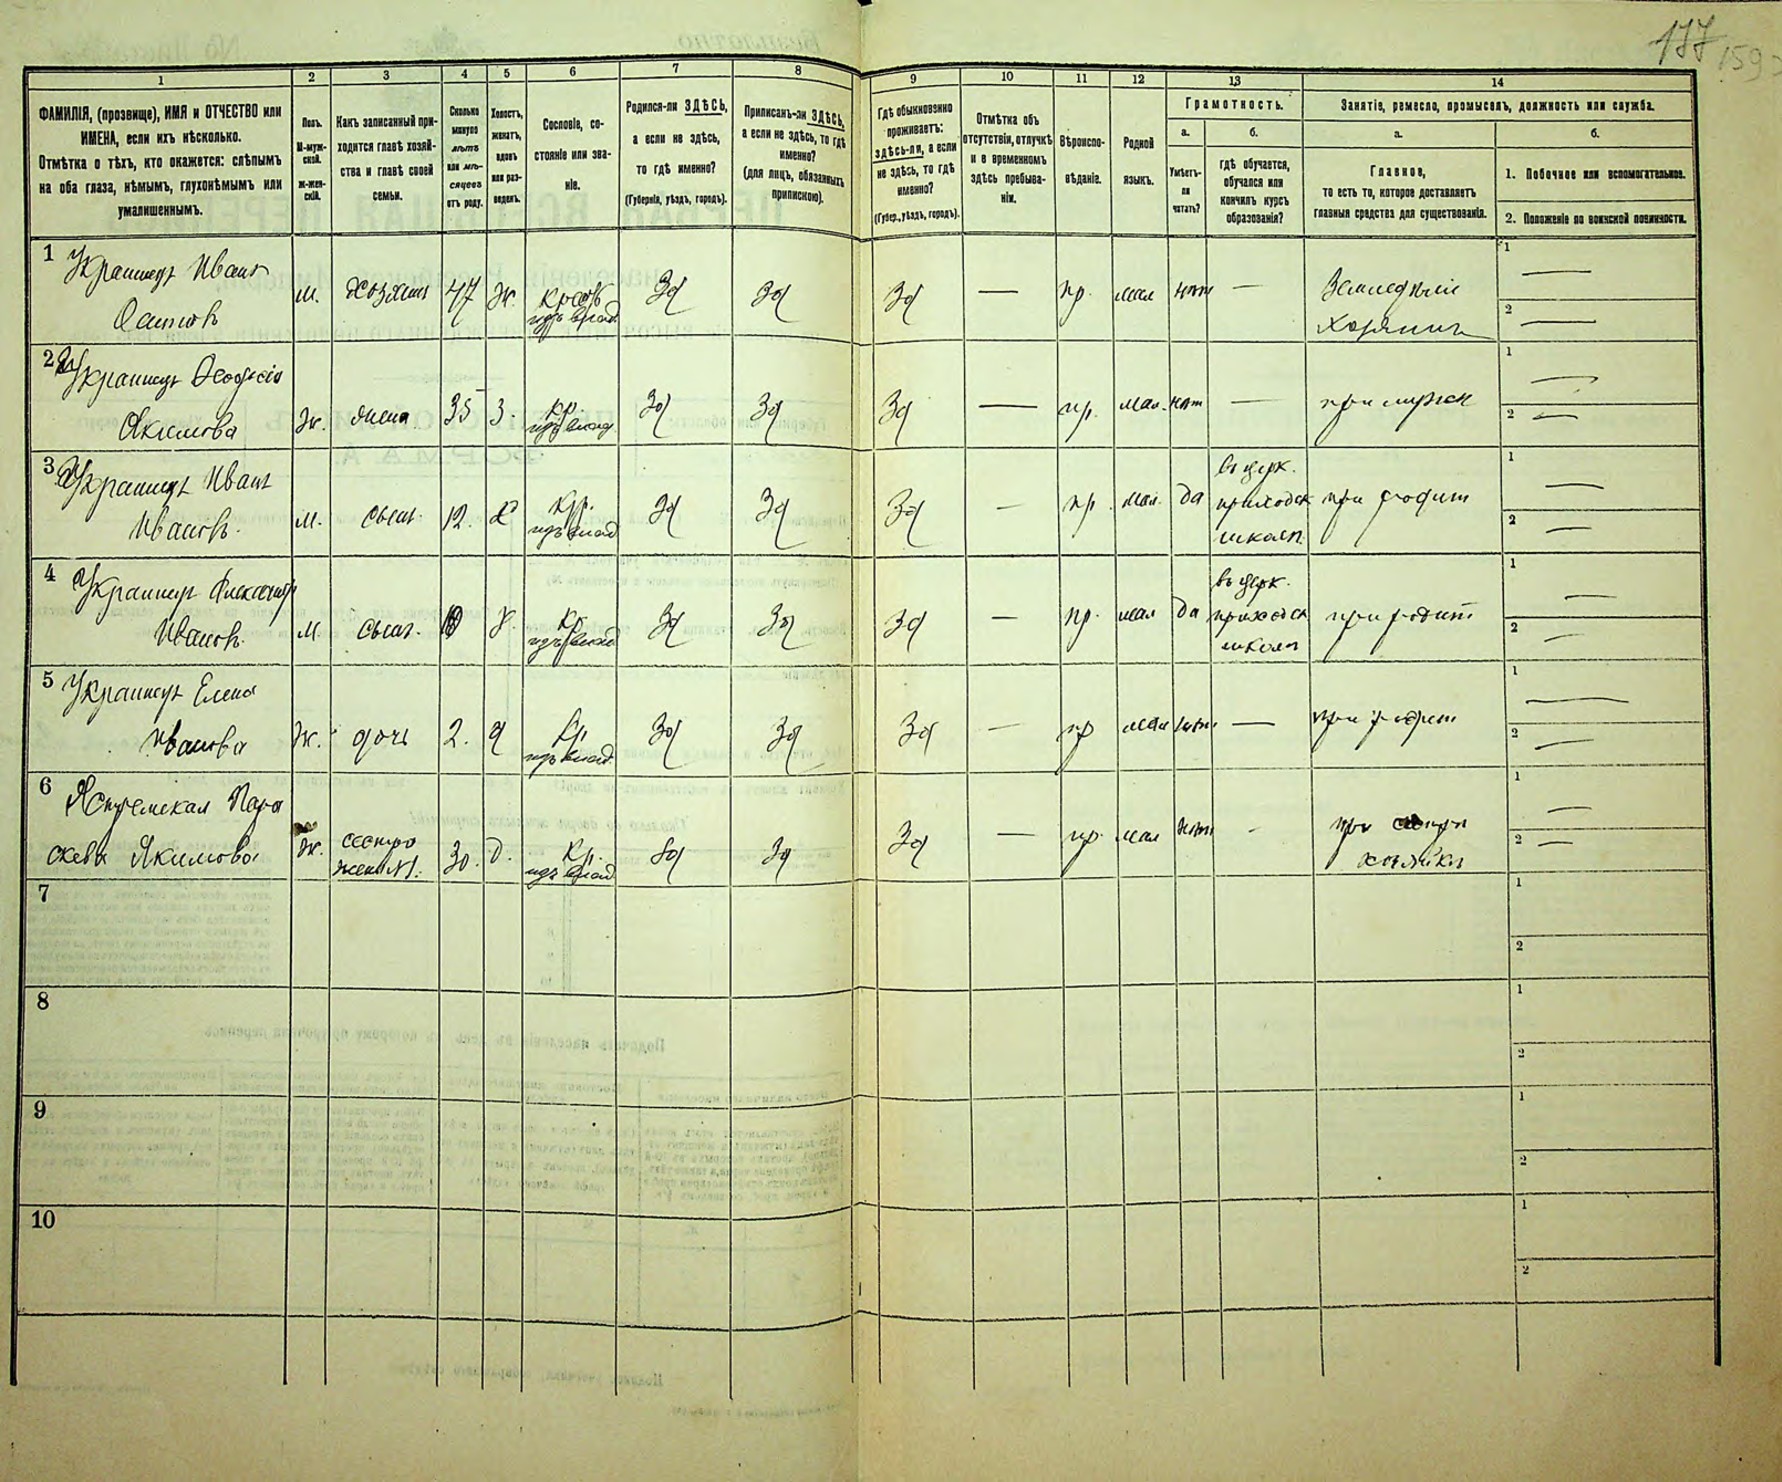 177
1 2 3 4 5 6 7 8 9 10 11 12 13 14
ФАМИЛІЯ, (прозвище), ИМЯ и ОТЧЕСТВО или
ИМЕНА, если ихъ нѣсколько.
Отмѣтка о тѣхъ, кто окажется: слѣпымъ
на оба глаза, нѣмымъ, глухонѣмымъ или
умалишеннымъ.
Полъ.
М-муж-
ской.
ж-жен-
скій.
Какъ записанный при-
ходится главѣ хозяй-
ства и главѣ своей
семьи.
Сколько
минуло
лѣтъ
или мѣ-
сяцевъ
отъ роду.
Холостъ,
женатъ,
вдовъ
или раз-
веденъ.
Сословіе, со-
стояніе или зва-
ніе.
Родился-ли ЗДѢСЬ,
а если не здѣсь,
то гдѣ именно?
(Губернія, уѣздъ, городъ).
Приписанъ-ли ЗДѢСЬ,
а если не здѣсь, то гдѣ
именно?
(для лицъ, обязанныхъ
припискою).
Гдѣ обыкновенно
проживаетъ:
здѣсь-ли, а если
не здѣсь, то гдѣ
именно?
(Губер., уѣздъ, городъ).
Отмѣтка объ
отсутствіи, отлучкѣ
и о временномъ
здѣсь пребыва-
ніи.
Вѣроиспо-
вѣданіе.
Родной
языкъ.
Грамотность.
а.
Умѣетъ-
ли
читать?
б.
гдѣ обучается,
обучался или
кончилъ курсъ
образованія?
Занятіе, ремесло, промыселъ, должность или служба.
а.
Главное,
то есть то, которое доставляетъ
главныя средства для существованія.
б.
1. Побочное или вспомогательное.
2. Положеніе по воинской повинности.
1 Украинецъ Иванъ
м. хозяинъ 47 ж. Зд Зд Зд — пр. мал нѣт — Земледѣліе
хозяинъ
1 —
2 —
2 Украинецъ
Якимова ж. жена 35 З. кр. Зд Зд Зд — пр. мал. нѣт — при мужѣ
1 —
2 —
3 Украинецъ Иванъ
Ивановъ. м. сынъ. 12. х кр. Зд Зд Зд — пр. мал. да
въ церк.
приходск
школѣ
при родит
1 —
2 —
4 Украинецъ Александръ
Ивановъ. м. сынъ. х. кр. Зд Зд Зд — пр. мал да
въ церк.
приходск
школѣ
при родит
1 —
2 —
5 Украинецъ Елена
Иванова ж. дочь 2. д кр. Зд Зд Зд — пр мал нѣт — при родит
1 —
2 —
6 Ястремская Пара
скева Якимова ж. сестра
жены №1. 30. д. кр. Зд Зд Зд — пр. мал нѣт - при сестрѣ
хозяйки
1 —
2 —
7
1
2
8
1
2
9
1
2
10
1
2